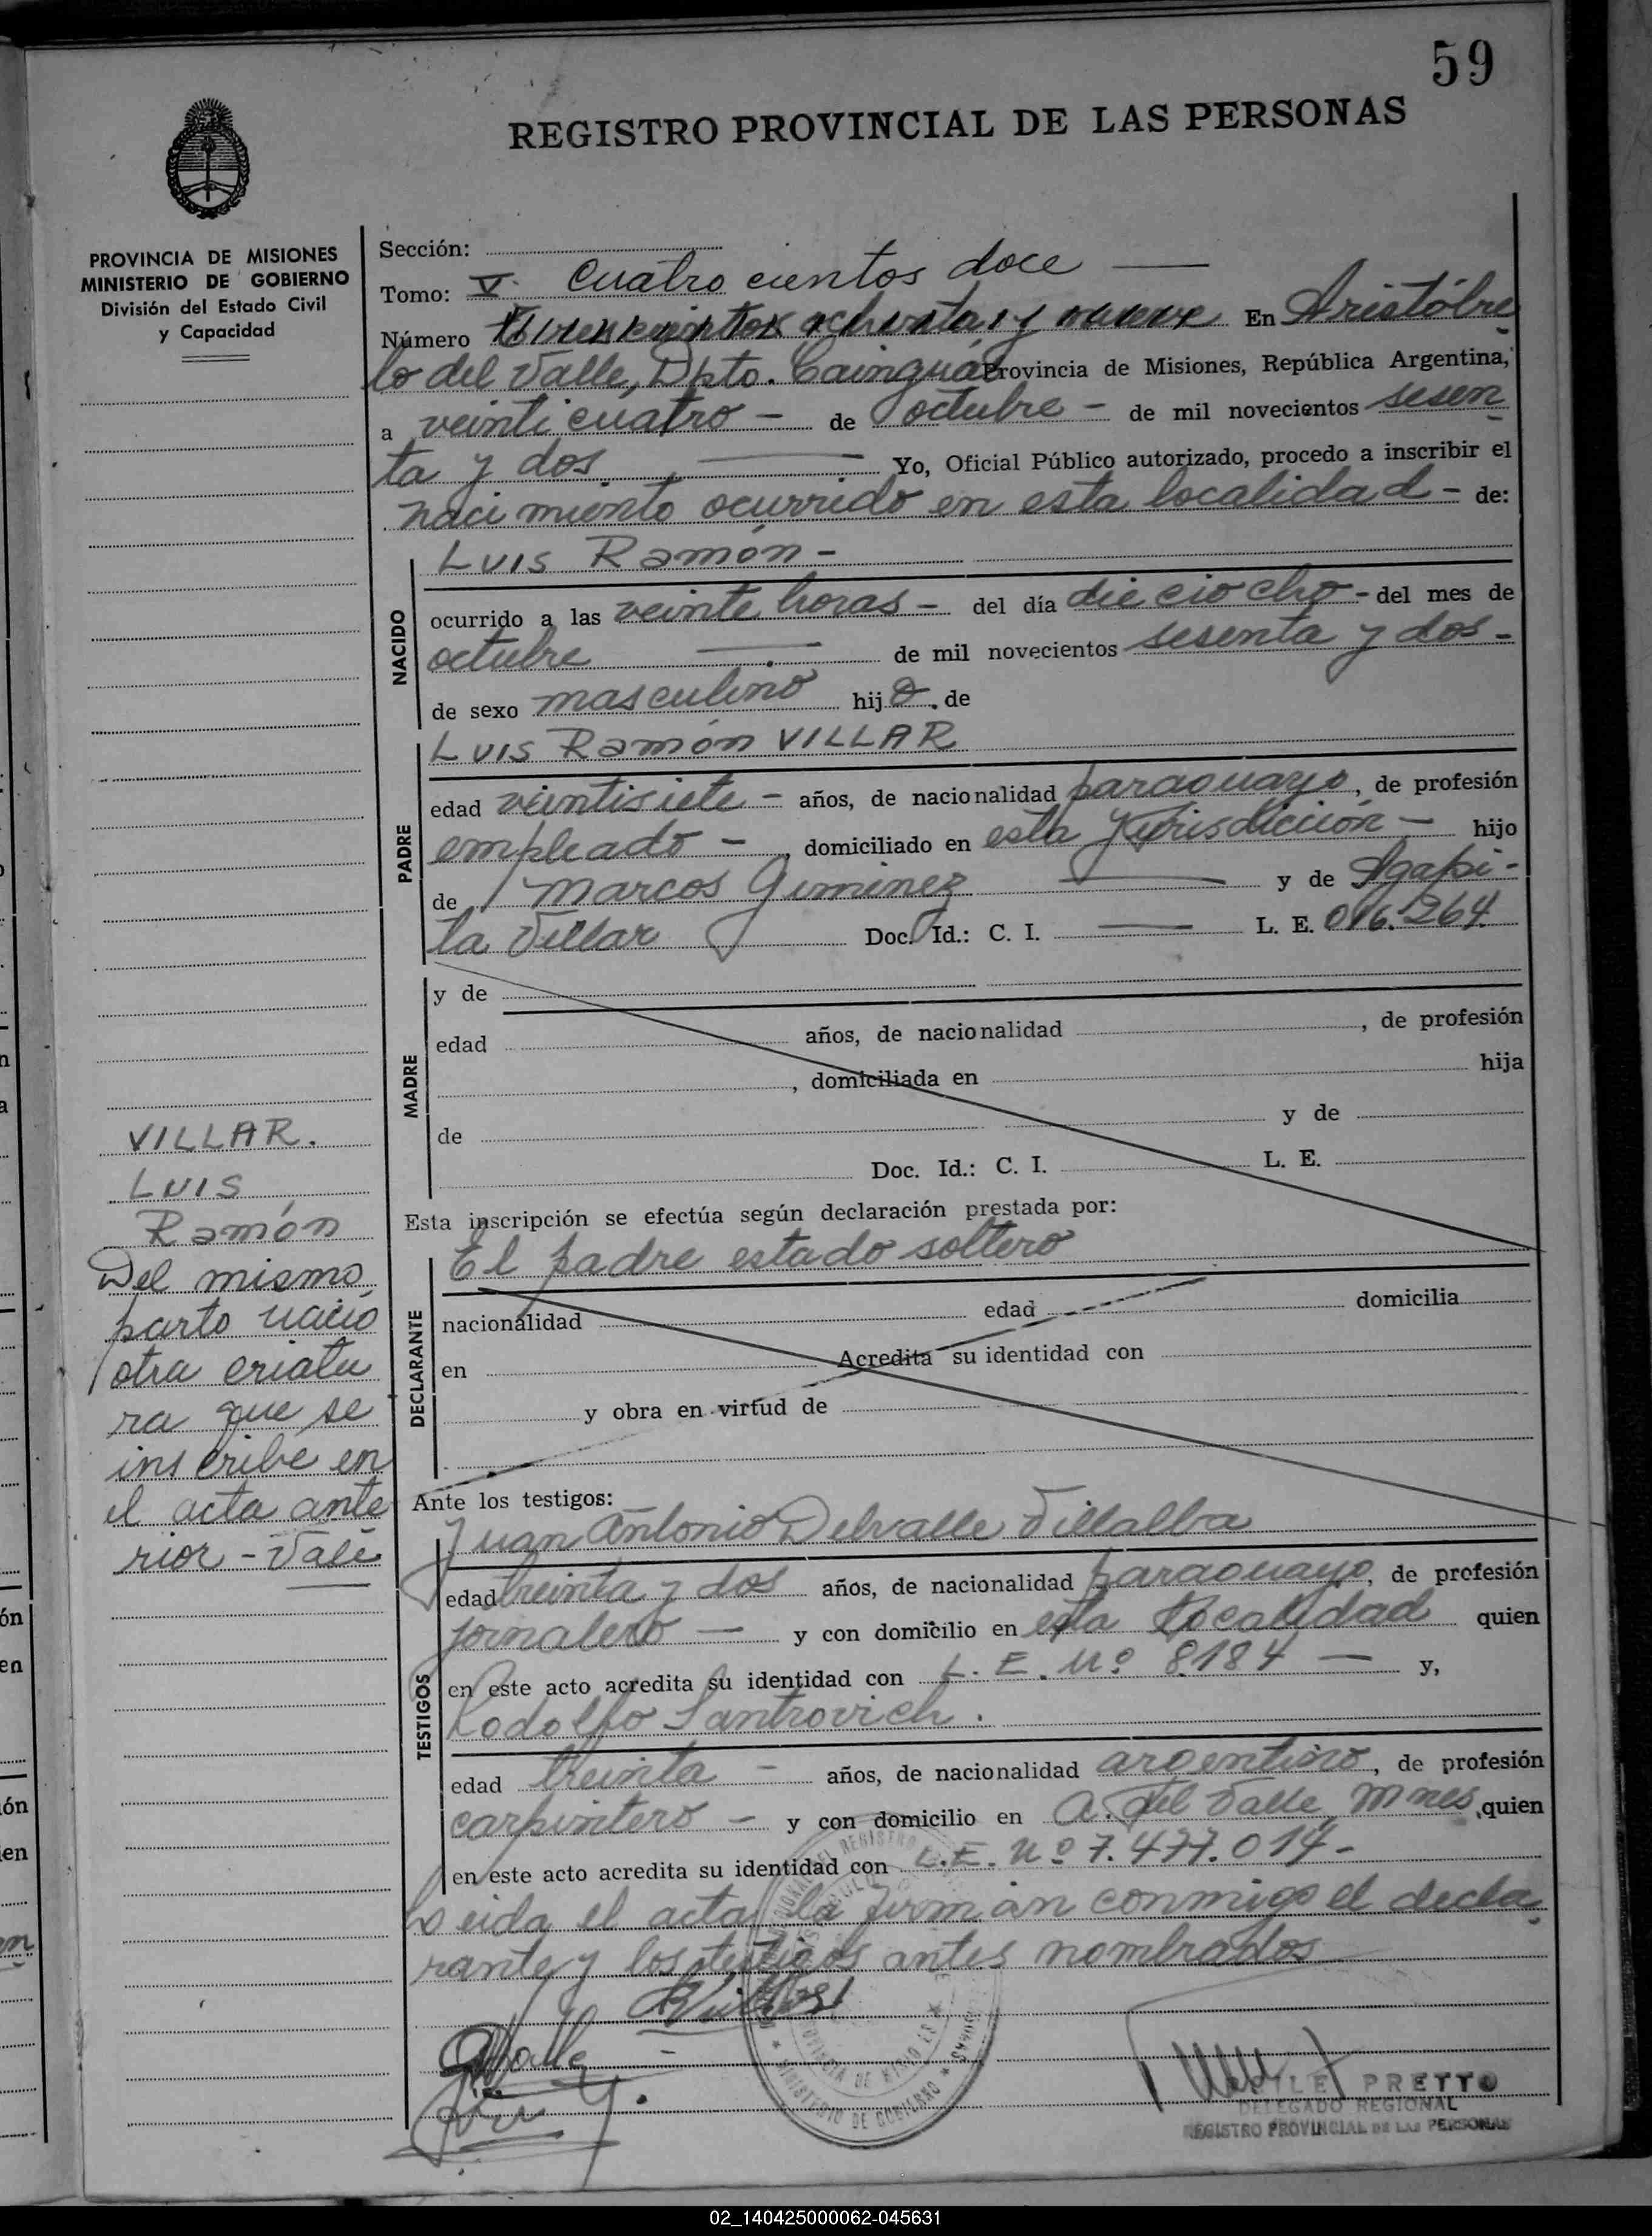 59
REGISTRO PROVINCIAL DE LAS PERSONAS
PROVINCIA DE MISIONES
MINISTERIO DE GOBIERNO
División del Estado Civil
y Capacidad
Sección:
Tomo: V. Cuatro cientos doce
Número En Aristóbu
lo del Valle, Dpto. Cainguás Provincia de Misiones, República Argentina,
a veinticuatro - de octubre - de mil novecientos sesen
ta y dos. Yo, Oficial Público autorizado, procedo a inscribir el
nacimiento ocurrido en esta localidad - de:
NACIDO
Luis Ramón -
ocurrido a las veinte horas - del día dieciocho - del mes de
octubre de mil novecientos sesenta y dos -
de sexo masculino hijo de
PADRE
Luis Ramón VILLAR
edad veintisiete - años, de nacionalidad paraguayo, de profesión
empleado - , domiciliado en esta jurisdicción - hijo
de Marcos Giminez y de Agapi-
ta Villar Doc. Id.: C. I. L. E. 016.264.
MADRE
y de
edad años, de nacionalidad , de profesión
, domiciliada en hija
de y de
Doc. Id.: C. I. L. E.
Esta inscripción se efectúa según declaración prestada por:
DECLARANTE
El padre estado soltero
nacionalidad edad domicilia
en Acredita su identidad con
y obra en virtud de
VILLAR.
Luis
Ramón
Del mismo
parto nació
otra criatu
ra que se
inscribe en
el acta ante
rior - Vale
Ante los testigos:
TESTIGOS
Juan Antonio Delvalle Villalba
edad treinta y dos años, de nacionalidad paraguayo, de profesión
jornalero - y con domicilio en esta localidad quien
en este acto acredita su identidad con L. E. Nº 8184 - y,
Rodolfo Santrovich.
edad treinta - años, de nacionalidad argentino, de profesión
carpintero - y con domicilio en A. del Valle Mnes, quien
en este acto acredita su identidad con L.E. Nº 7.477.014-
Leida el acta la firman conmigo el decla
rante y los testigos antes nombrados
MINISTERIO DE GOBIERNO
PRETTO
DELEGADO REGIONAL
REGISTRO PROVINCIAL DE LAS PERSONAS
02_140425000062-045631